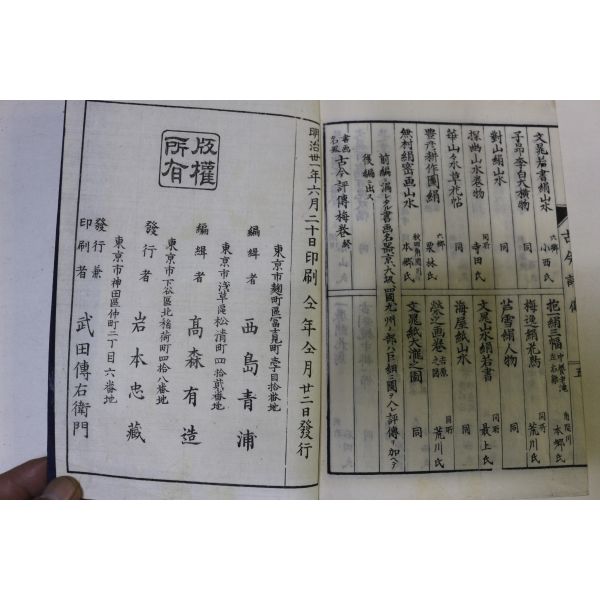 文晁若書絹山水 六郷 小西氏
子昂李白大横物 同
對山絹山水 同
探幽山水巻物 同所 寺田氏
華山々水草花帖 同
豊彦耕作圖絹 六郷 栗林氏
無村絹密画山水 本郷氏
抱絹三幅 中 養老滝 左右 雞 角間川 本郷氏
梅逸絹花鳥 同所 荒川氏
芦雪絹人物 同
文晁山水絹若書 同所 最上氏
海屋紙山水 同
同所 荒川氏
文晁紙大瀧之圖 同
前編ニ漏レタル書画名器京、大坂、四國九州ノ部ハ巨細ニ圖ヲ入レ評傳ヲ加ヘテ
後編ニ出ス
書画名器 古今評傳梅巻 終
古今評傳
五
版權所有
明治廿一年六月二十日印刷 仝年仝月廿二日發行
東京市麹町區冨士見町壱丁目拾番地
編緝者 西島青浦
東京市浅草區松清町四拾貳番地
編緝者 髙森有造
東京市下谷區北稲荷町四拾八番地
發行者 岩本忠藏
東京市神田區仲町二丁目六番地
發行兼印刷者 武田傳右衛門